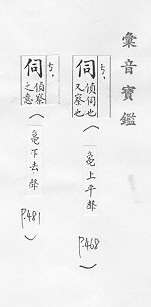 彙音寶鑑
伺 ㄎ, 偵伺也又察也
(龜上平聲 P.468)
伺 ㄎ, 偵察之意
(龜下去聲 P.481)